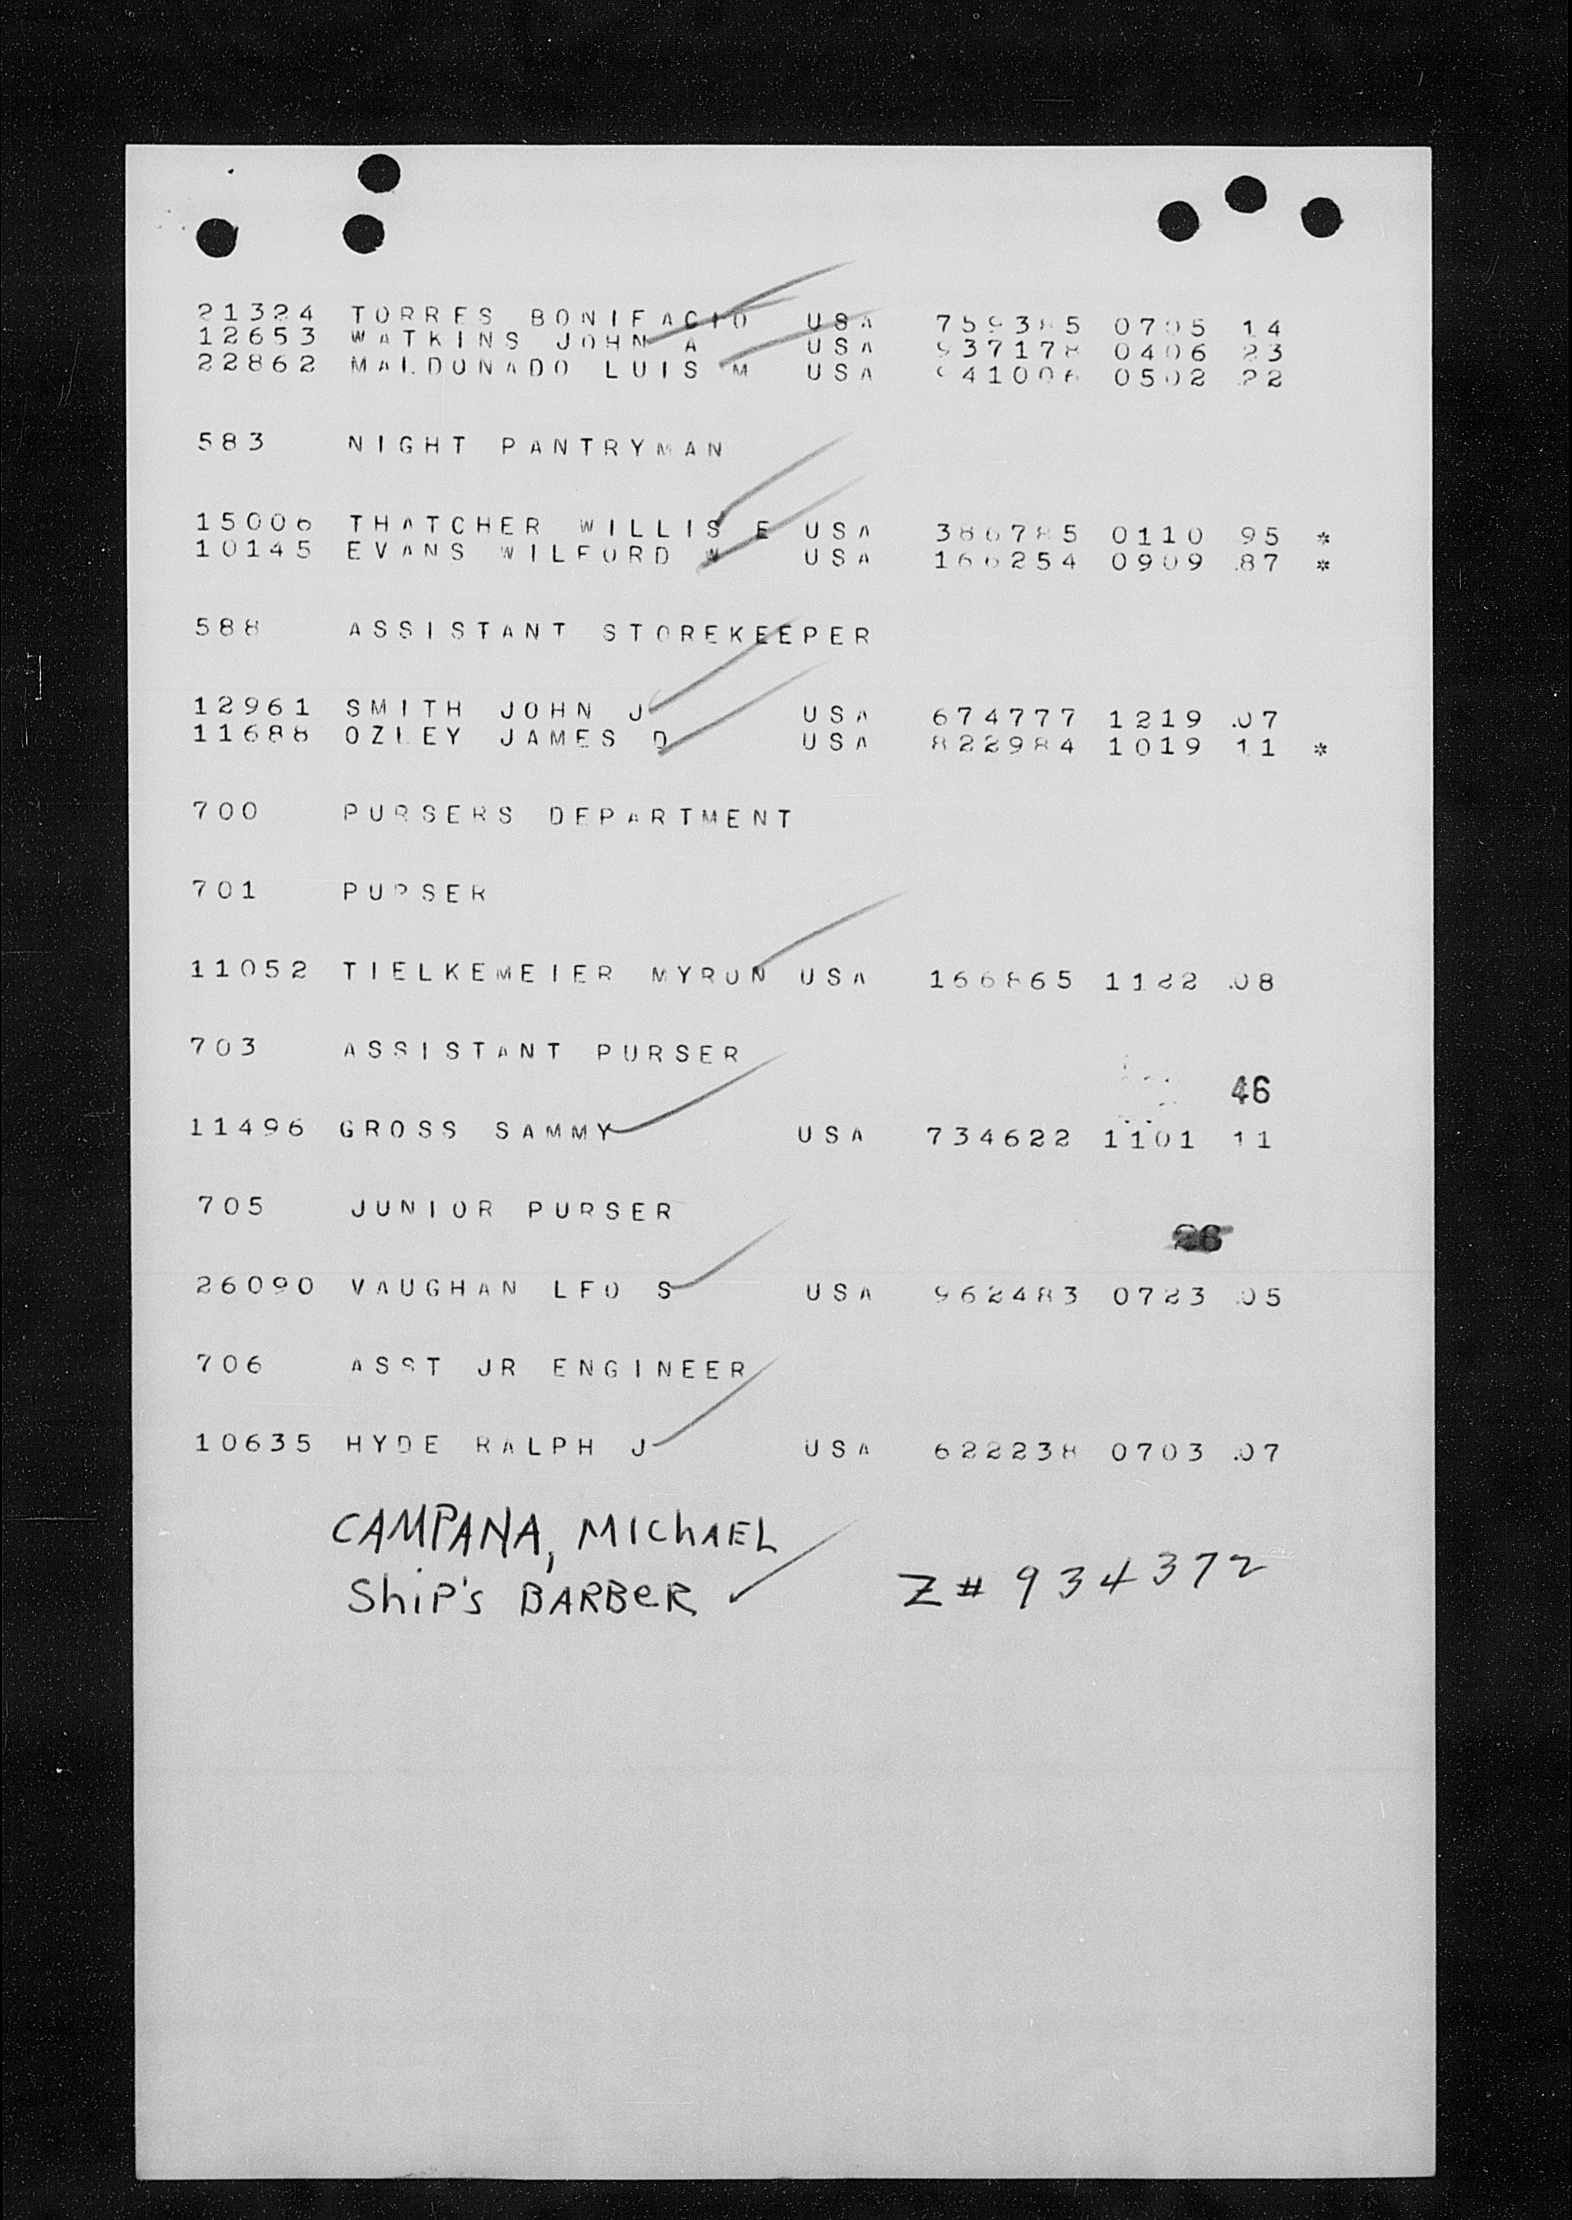 21324 TORRES BONIFACIO USA 759385 0705 14
12653 WATKINS JOHN A USA 937178 0406 23
22862 MALDONADO LUIS M USA 941006 0502 22
583 NIGHT PANTRYMAN
15006 THATCHER WILLIS E USA 386785 0110 95 *
10145 EVANS WILFORD W USA 166254 0909 87 *
588 ASSISTANT STOREKEEPER
12961 SMITH JOHN J USA 674777 1219 07
11688 OZLEY JAMES D USA 822984 1019 11 *
700 PURSERS DEPARTMENT
701 PURSER
11052 TIELKEMEIER MYRON USA 166865 1122 08
703 ASSISTANT PURSER
46
11496 GROSS SAMMY USA 734622 1101 11
705 JUNIOR PURSER
26090 VAUGHAN LEO S USA 962483 0723 05
706 ASST JR ENGINEER
10635 HYDE RALPH J USA 622238 0703 07
CAMPANA, MIChAEL
ShiP's BARBeR Z# 934372